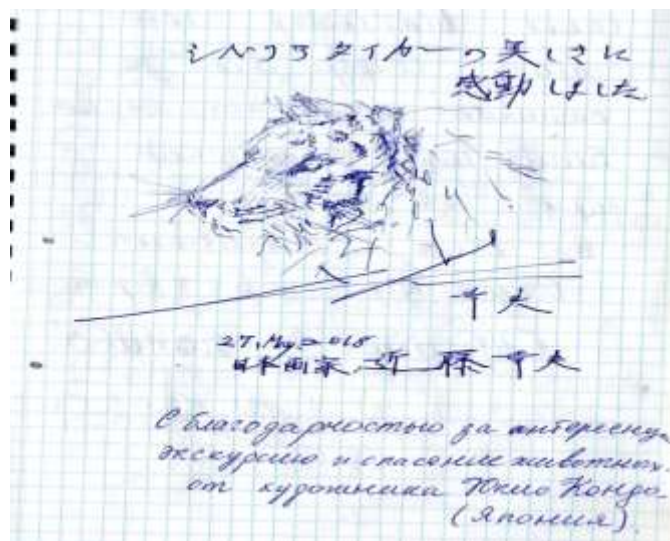 シベリアタイガーの美しさに
感動しました
幸夫
27, May 2015
日本画家 近藤幸夫
С благодарностью за интересную
экскурсию и спасение животных
от художника Юкио Кондо
(Япония).